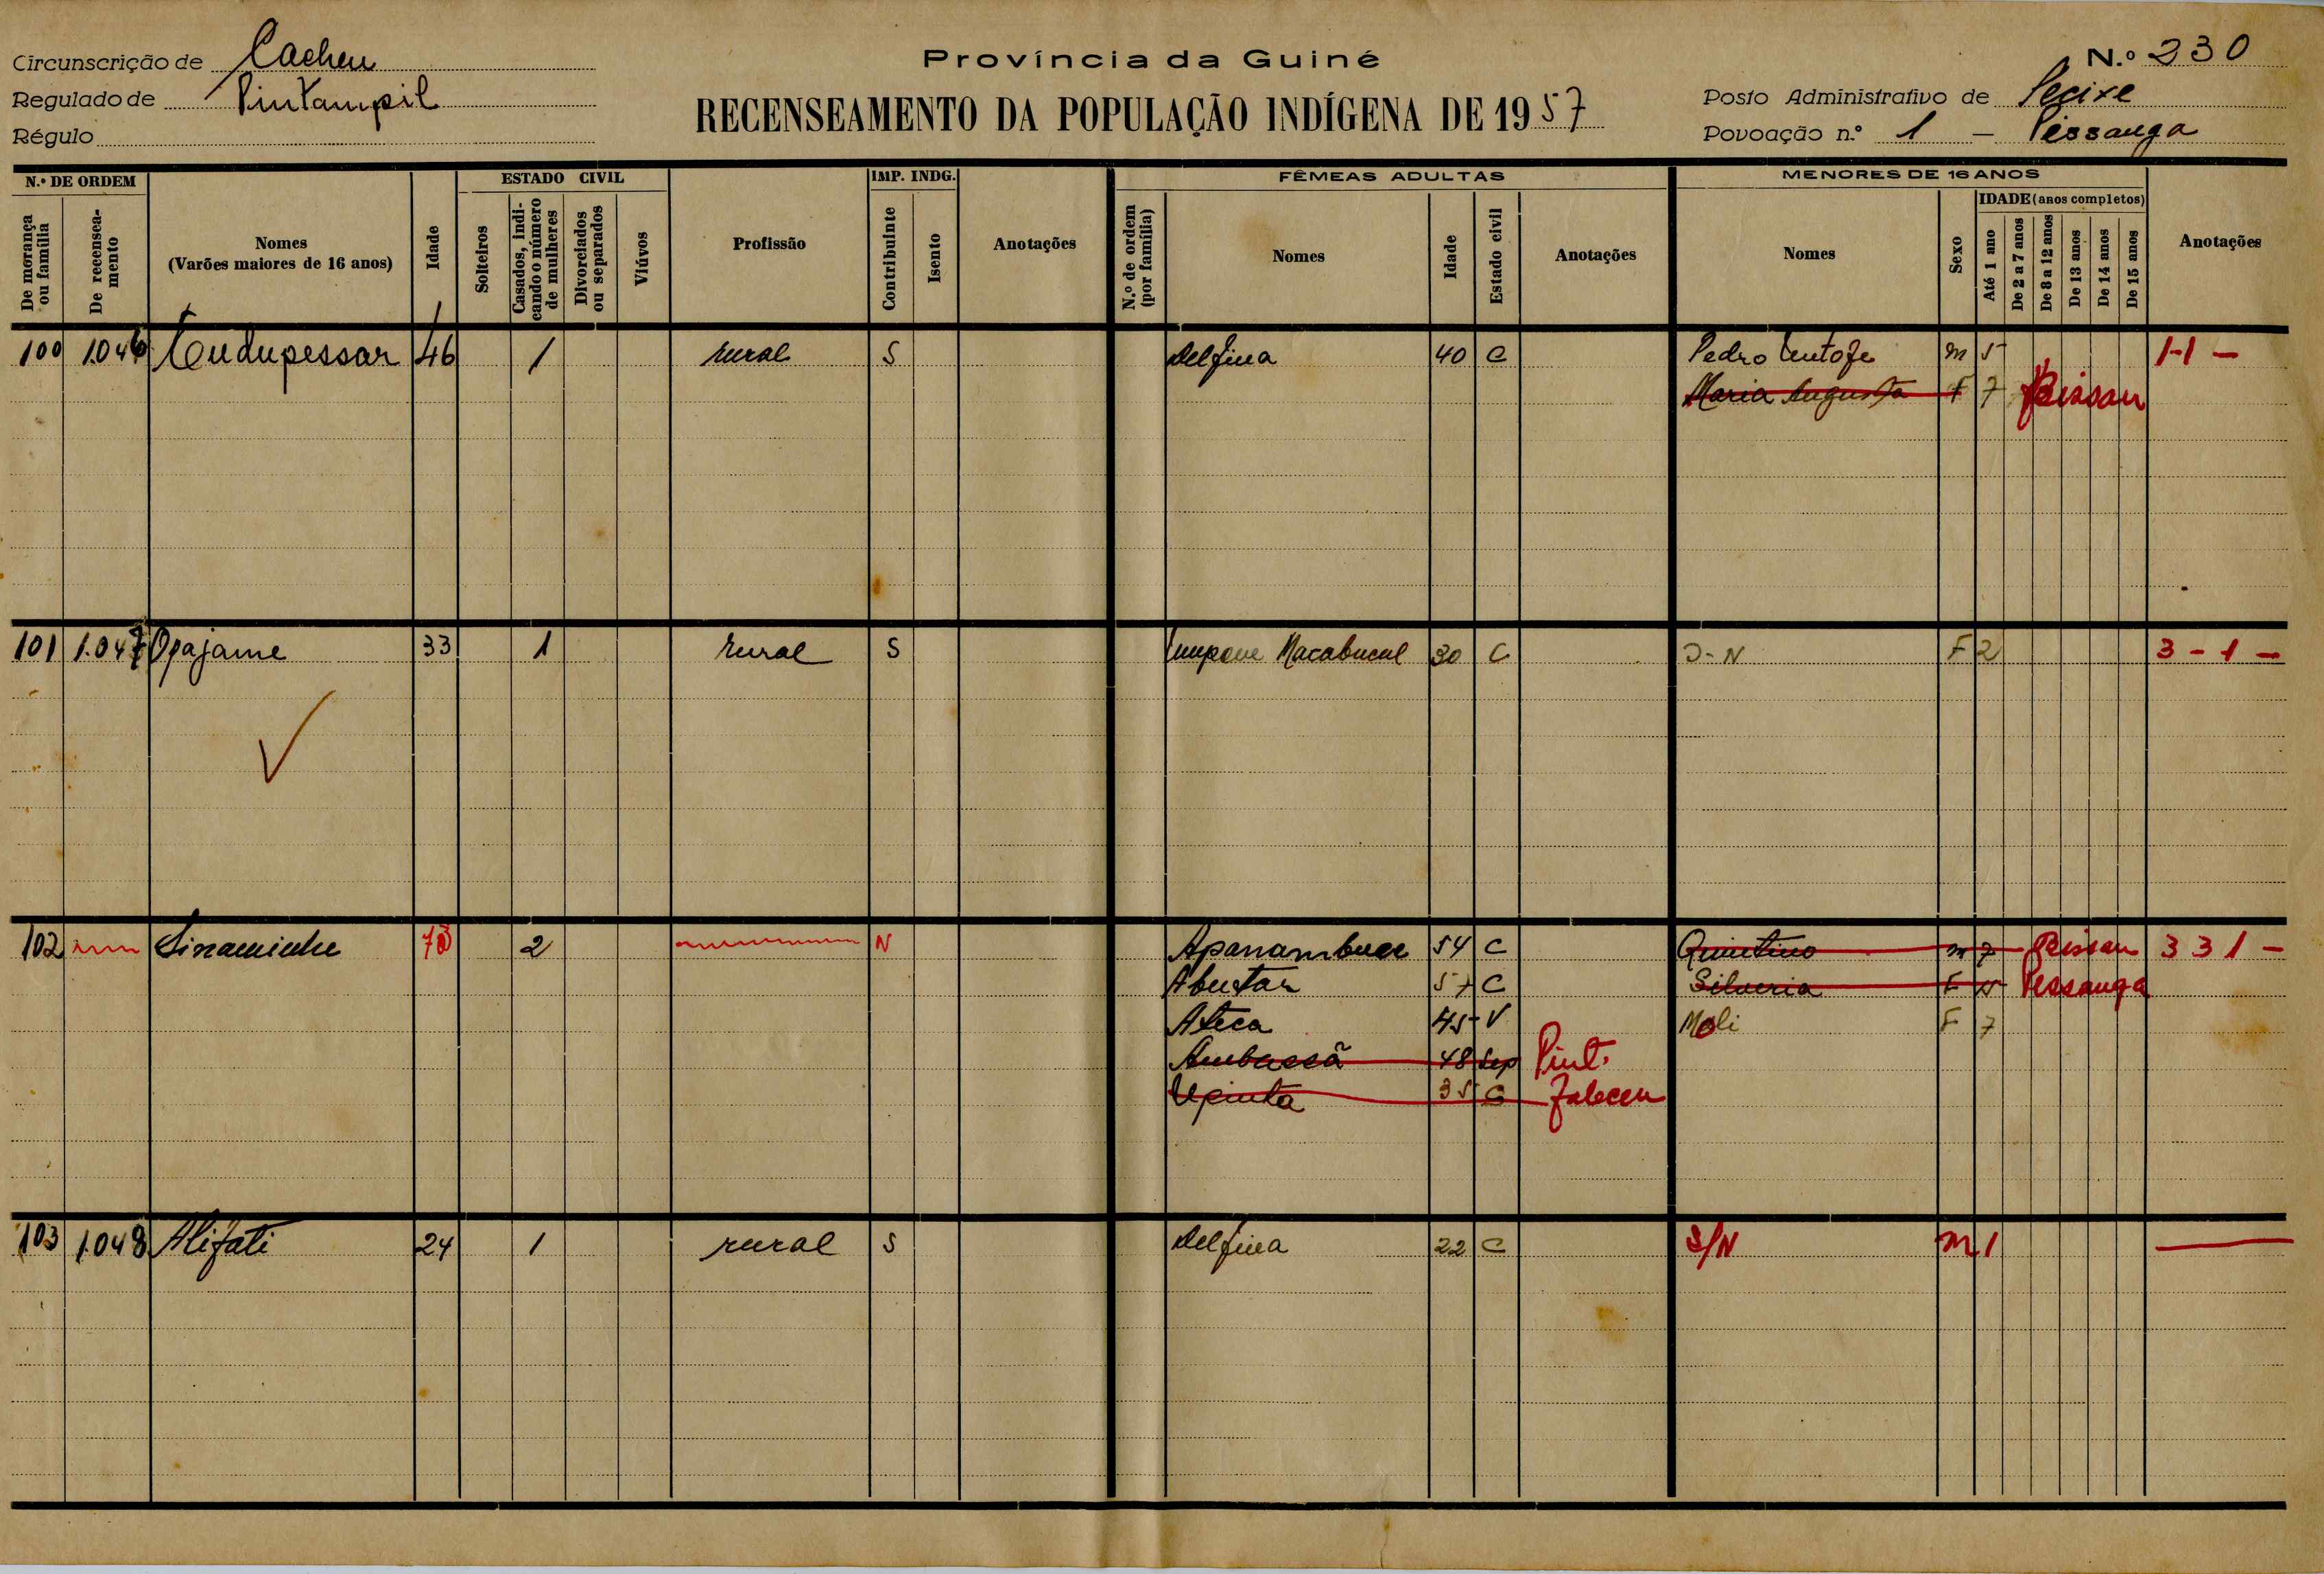 Circunscrição de Cacheu
Regulado de Pintampil
Régulo
Província da Guiné
RECENSEAMENTO DA POPULAÇÃO INDÍGENA DE 1957
N.º 230
Posto Administrativo de Pecixe
Povoação n.º 1 — Pessanga
N.º DE ORDEM
De morança ou família
De recenseamento
Nomes
(Varões maiores de 16 anos)
Idade
ESTADO CIVIL
Solteiros
Casados, indicando o número de mulheres
Divorciados ou separados
Viúvos
Profissão
IMP. INDG.
Contribuinte
Isento
Anotações
FÊMEAS ADULTAS
N.º de ordem (por família)
Nomes
Idade
Estado civil
Anotações
MENORES DE 16 ANOS
Nomes
Sexo
IDADE (anos completos)
Até 1 ano
De 2 a 7 anos
De 8 a 12 anos
De 13 anos
De 14 anos
De 15 anos
Anotações
100 1.046 46 1 rural S Delfina 40 C Pedro m 5 1-1 —
Maria Augusta F 7 Bissau
101 1.047 Opajame 33 1 rural S Macabucul 30 C F 2 3 - 1 —
102 2 N 54 C Quintino m 7 Bissau 3 3 1 —
Abutar 57 C Silveria F Pessanga
Ateca 45 V Moli F 7
48 sep Pint.
Upinta 35 C Faleceu
103 1.048 Alifati 24 1 rural S Delfina 22 C S/N m 1